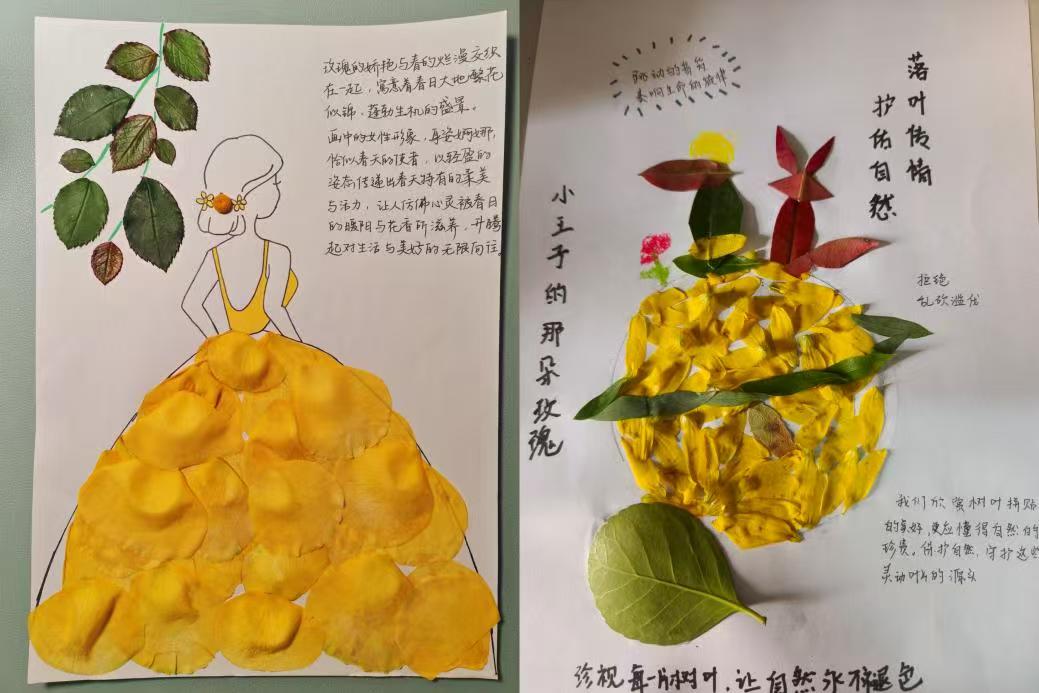 玫瑰的娇艳与春的烂漫交织
在一起，寓意着春日大地繁花
似锦，蓬勃生机的盛景。
画中的女性形象，身姿婀娜，
恰似春天的使者，以轻盈的
姿态传递出春天特有的柔美
与活力，让人仿佛心灵被春日
的暖阳与花香所滋养，升腾
起对生活与美好的无限向往。
跳动的音符
奏响生命的旋律
落叶传情
护佑自然
小王子的那朵玫瑰
拒绝
乱砍滥伐
我们欣赏树叶拼贴
的美好，更应懂得自然的
珍贵，保护自然，守护这些
灵动叶片的源头
珍视每一片树叶，让自然永不褪色